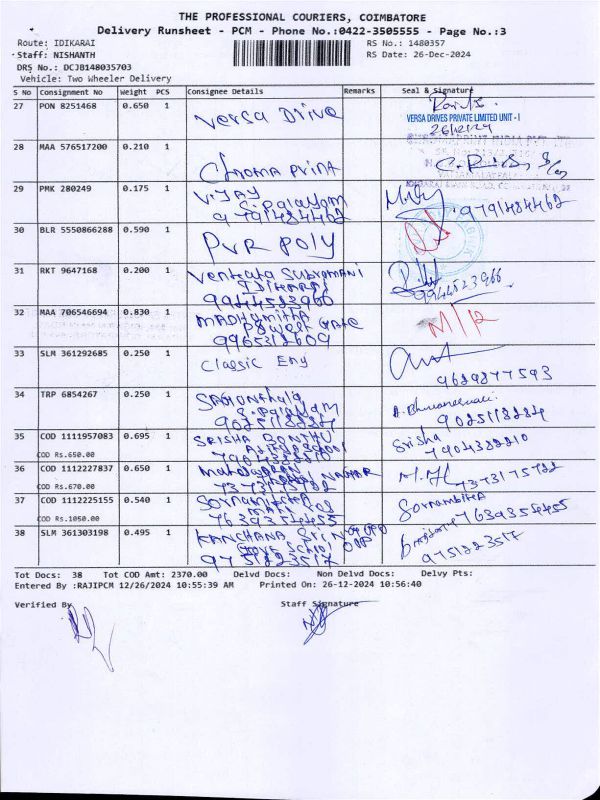 THE PROFESSIONAL COURIERS, COIMBATORE
Delivery Runsheet - PCM - Phone No.:0422-3505555 - Page No.:3
Route: IDIKARAI RS No.: 1480357
Staff: NISHANTH RS Date: 26-Dec-2024
DRS No.: DCJB148035703
Vehicle: Two Wheeler Delivery
S No Consignment No Weight PCS Consignee Details Remarks Seal & Signature
27 PON 8251468 0.650 1 Versa Drive
VERSA DRIVES PRIVATE LIMITED UNIT - I
26/12/24
28 MAA 576517200 0.210 1 Chroma Print
29 PMK 280249 0.175 1 VIJAY
S. Palayam
9791484462 9791484462
30 BLR 5550866288 0.590 1 PVR POLY
31 RKT 9647168 0.200 1 Venkata Subramani
Idikarai
9944523966 9944523966
32 MAA 706546694 0.830 1 MADHUMITHA
GATE
9965312609
33 SLM 361292685 0.250 1 Classic Eng
9629877593
34 TRP 6854267 0.250 1
S. Palayam A. Bhuvaneswari
9025118284 9025118284
35 COD 1111957083 0.695 1 SRISHA
COD Rs.650.00 7904382210 Srisha 7904382210
36 COD 1112227837 0.650 1 NAGAR
COD Rs.670.00 7373175722 7373175722
37 COD 1112225155 0.540 1 Sornambika
COD Rs.1050.00 7639354455 Sornambika 7639354455
38 SLM 361303198 0.495 1 KANCHANA SRI
9751223517 9751223517
Tot Docs: 38 Tot COD Amt: 2370.00 Delvd Docs: Non Delvd Docs: Delvy Pts:
Entered By :RAJIPCM 12/26/2024 10:55:39 AM Printed On: 26-12-2024 10:56:40
Verified By Staff Signature